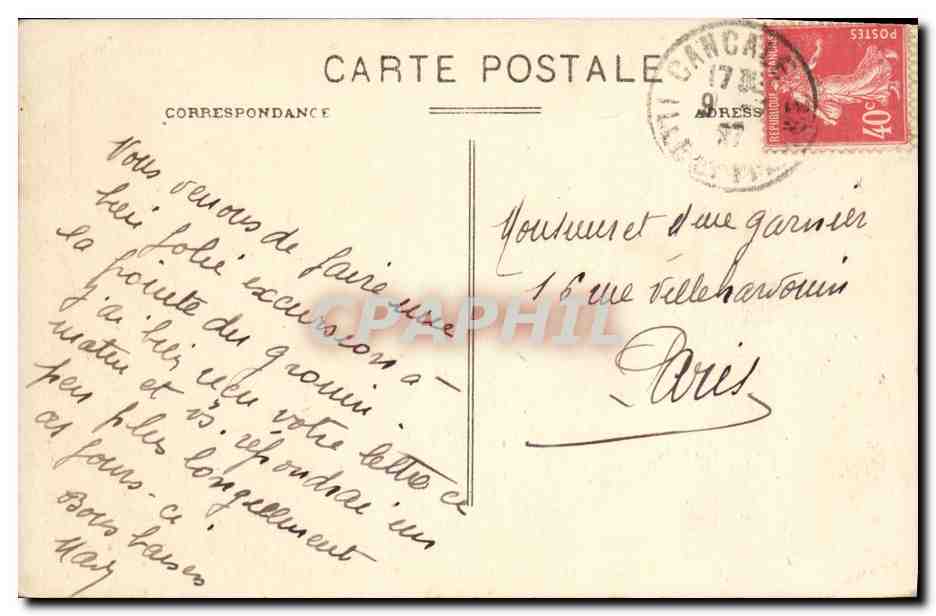 CARTE POSTALE
CORRESPONDANCE
ADRESSE
CANCALE
17
9
37
ILLE ET
POSTES
REPUBLIQUE FRANCAISE
40c
Nous venons de faire une
bien jolie excursion à
la pointe du grouin.
j'ai bien reçu votre lettre ce
matin et vs. répondrai un
peu plus longuement
ces jours-ci
Bons baisers
Monsieur et Mme Garnier
16 rue Villehardouin
Paris
CPAPHIL